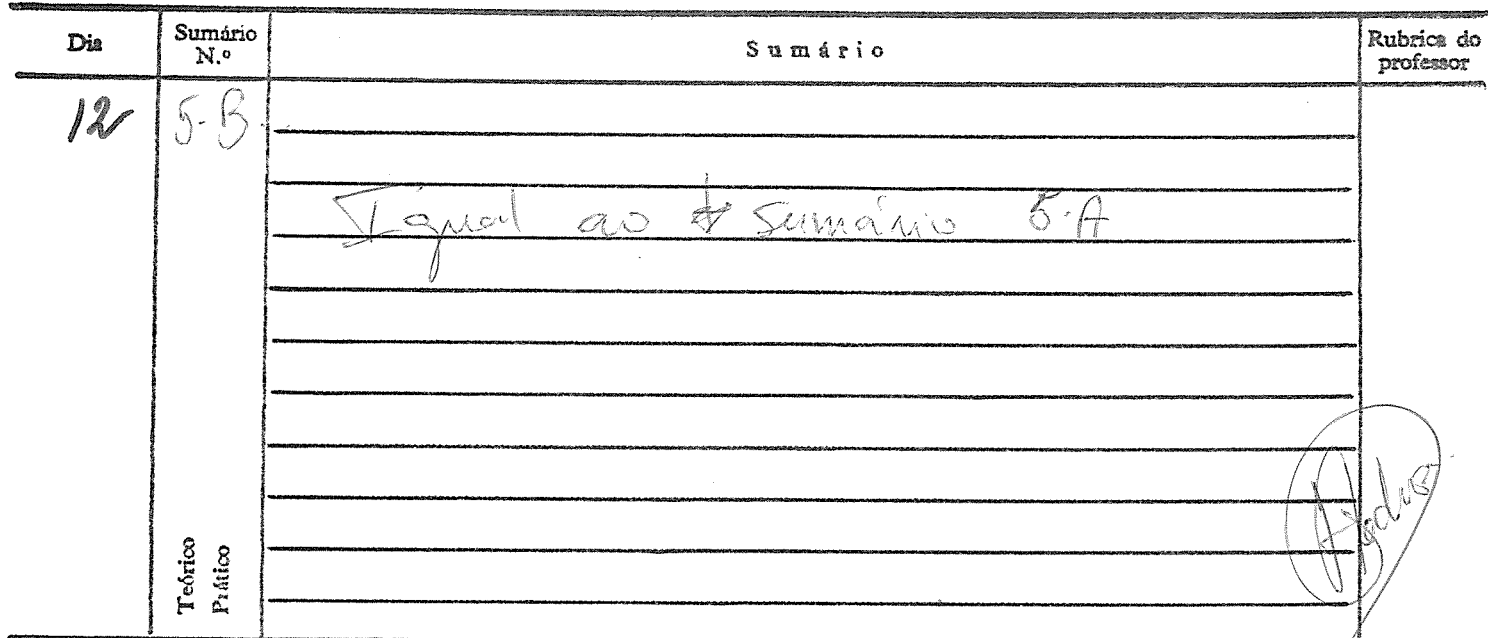 Dia
Sumário
N.º
Sumário
Rubrica do
professor
12
5-B
Igual ao sumário 5-A
Teórico
Prático